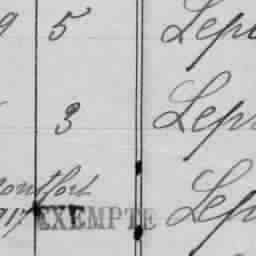 9 5 Lep
3 Lep
montfort
917 EXEMPTE Lep